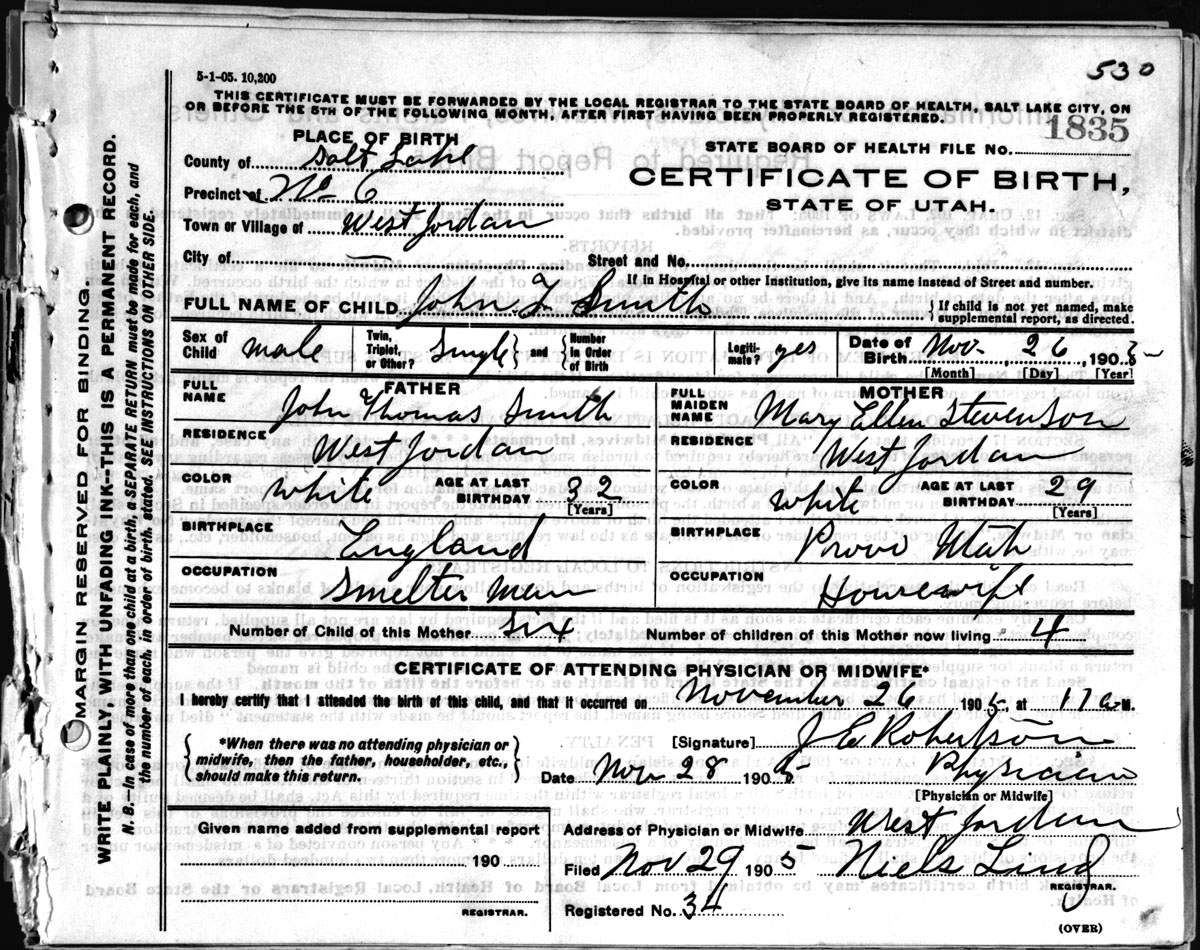 530
5-1-05. 10,200
THIS CERTIFICATE MUST BE FORWARDED BY THE LOCAL REGISTRAR TO THE STATE BOARD OF HEALTH, SALT LAKE CITY, ON
OR BEFORE THE 5TH OF THE FOLLOWING MONTH, AFTER FIRST HAVING BEEN PROPERLY REGISTERED.
1835
PLACE OF BIRTH
STATE BOARD OF HEALTH FILE NO.
County of Salt Lake
CERTIFICATE OF BIRTH,
Precinct of No 6
STATE OF UTAH.
Town or Village of West Jordan
City of — Street and No.
If in Hospital or other Institution, give its name instead of Street and number.
FULL NAME OF CHILD John T. Smith { If child is not yet named, make
supplemental report, as directed.
Sex of Child male Twin, Triplet, or Other? Single } and { Number in Order of Birth Legiti-mate? yes Date of Birth Nov. 26, 1905
[Month] [Day] [Year]
FATHER MOTHER
FULL NAME John Thomas Smith FULL MAIDEN NAME Mary Ellen Stevenson
RESIDENCE West Jordan RESIDENCE West Jordan
COLOR white AGE AT LAST BIRTHDAY 32 [Years] COLOR white AGE AT LAST BIRTHDAY 29 [Years]
BIRTHPLACE England BIRTHPLACE Provo Utah
OCCUPATION Smelter Man OCCUPATION Housewife
Number of Child of this Mother six Number of children of this Mother now living 4
CERTIFICATE OF ATTENDING PHYSICIAN OR MIDWIFE*
I hereby certify that I attended the birth of this child, and that it occurred on November 26 1905, at M.
{ *When there was no attending physician or midwife, then the father, householder, etc., should make this return. }
[Signature] J E Robertson
Date Nov 28 1905 Physician
[Physician or Midwife]
Given name added from supplemental report
Address of Physician or Midwife West Jordan
190
Filed Nov 29 1905 Niels Lind
REGISTRAR.
REGISTRAR.
Registered No. 34
(OVER)
MARGIN RESERVED FOR BINDING
WRITE PLAINLY, WITH UNFADING INK—THIS IS A PERMANENT RECORD.
N. B.—In case of more than one child at a birth, a SEPARATE RETURN must be made for each, and
the number of each, in order of birth stated. SEE INSTRUCTIONS ON OTHER SIDE.